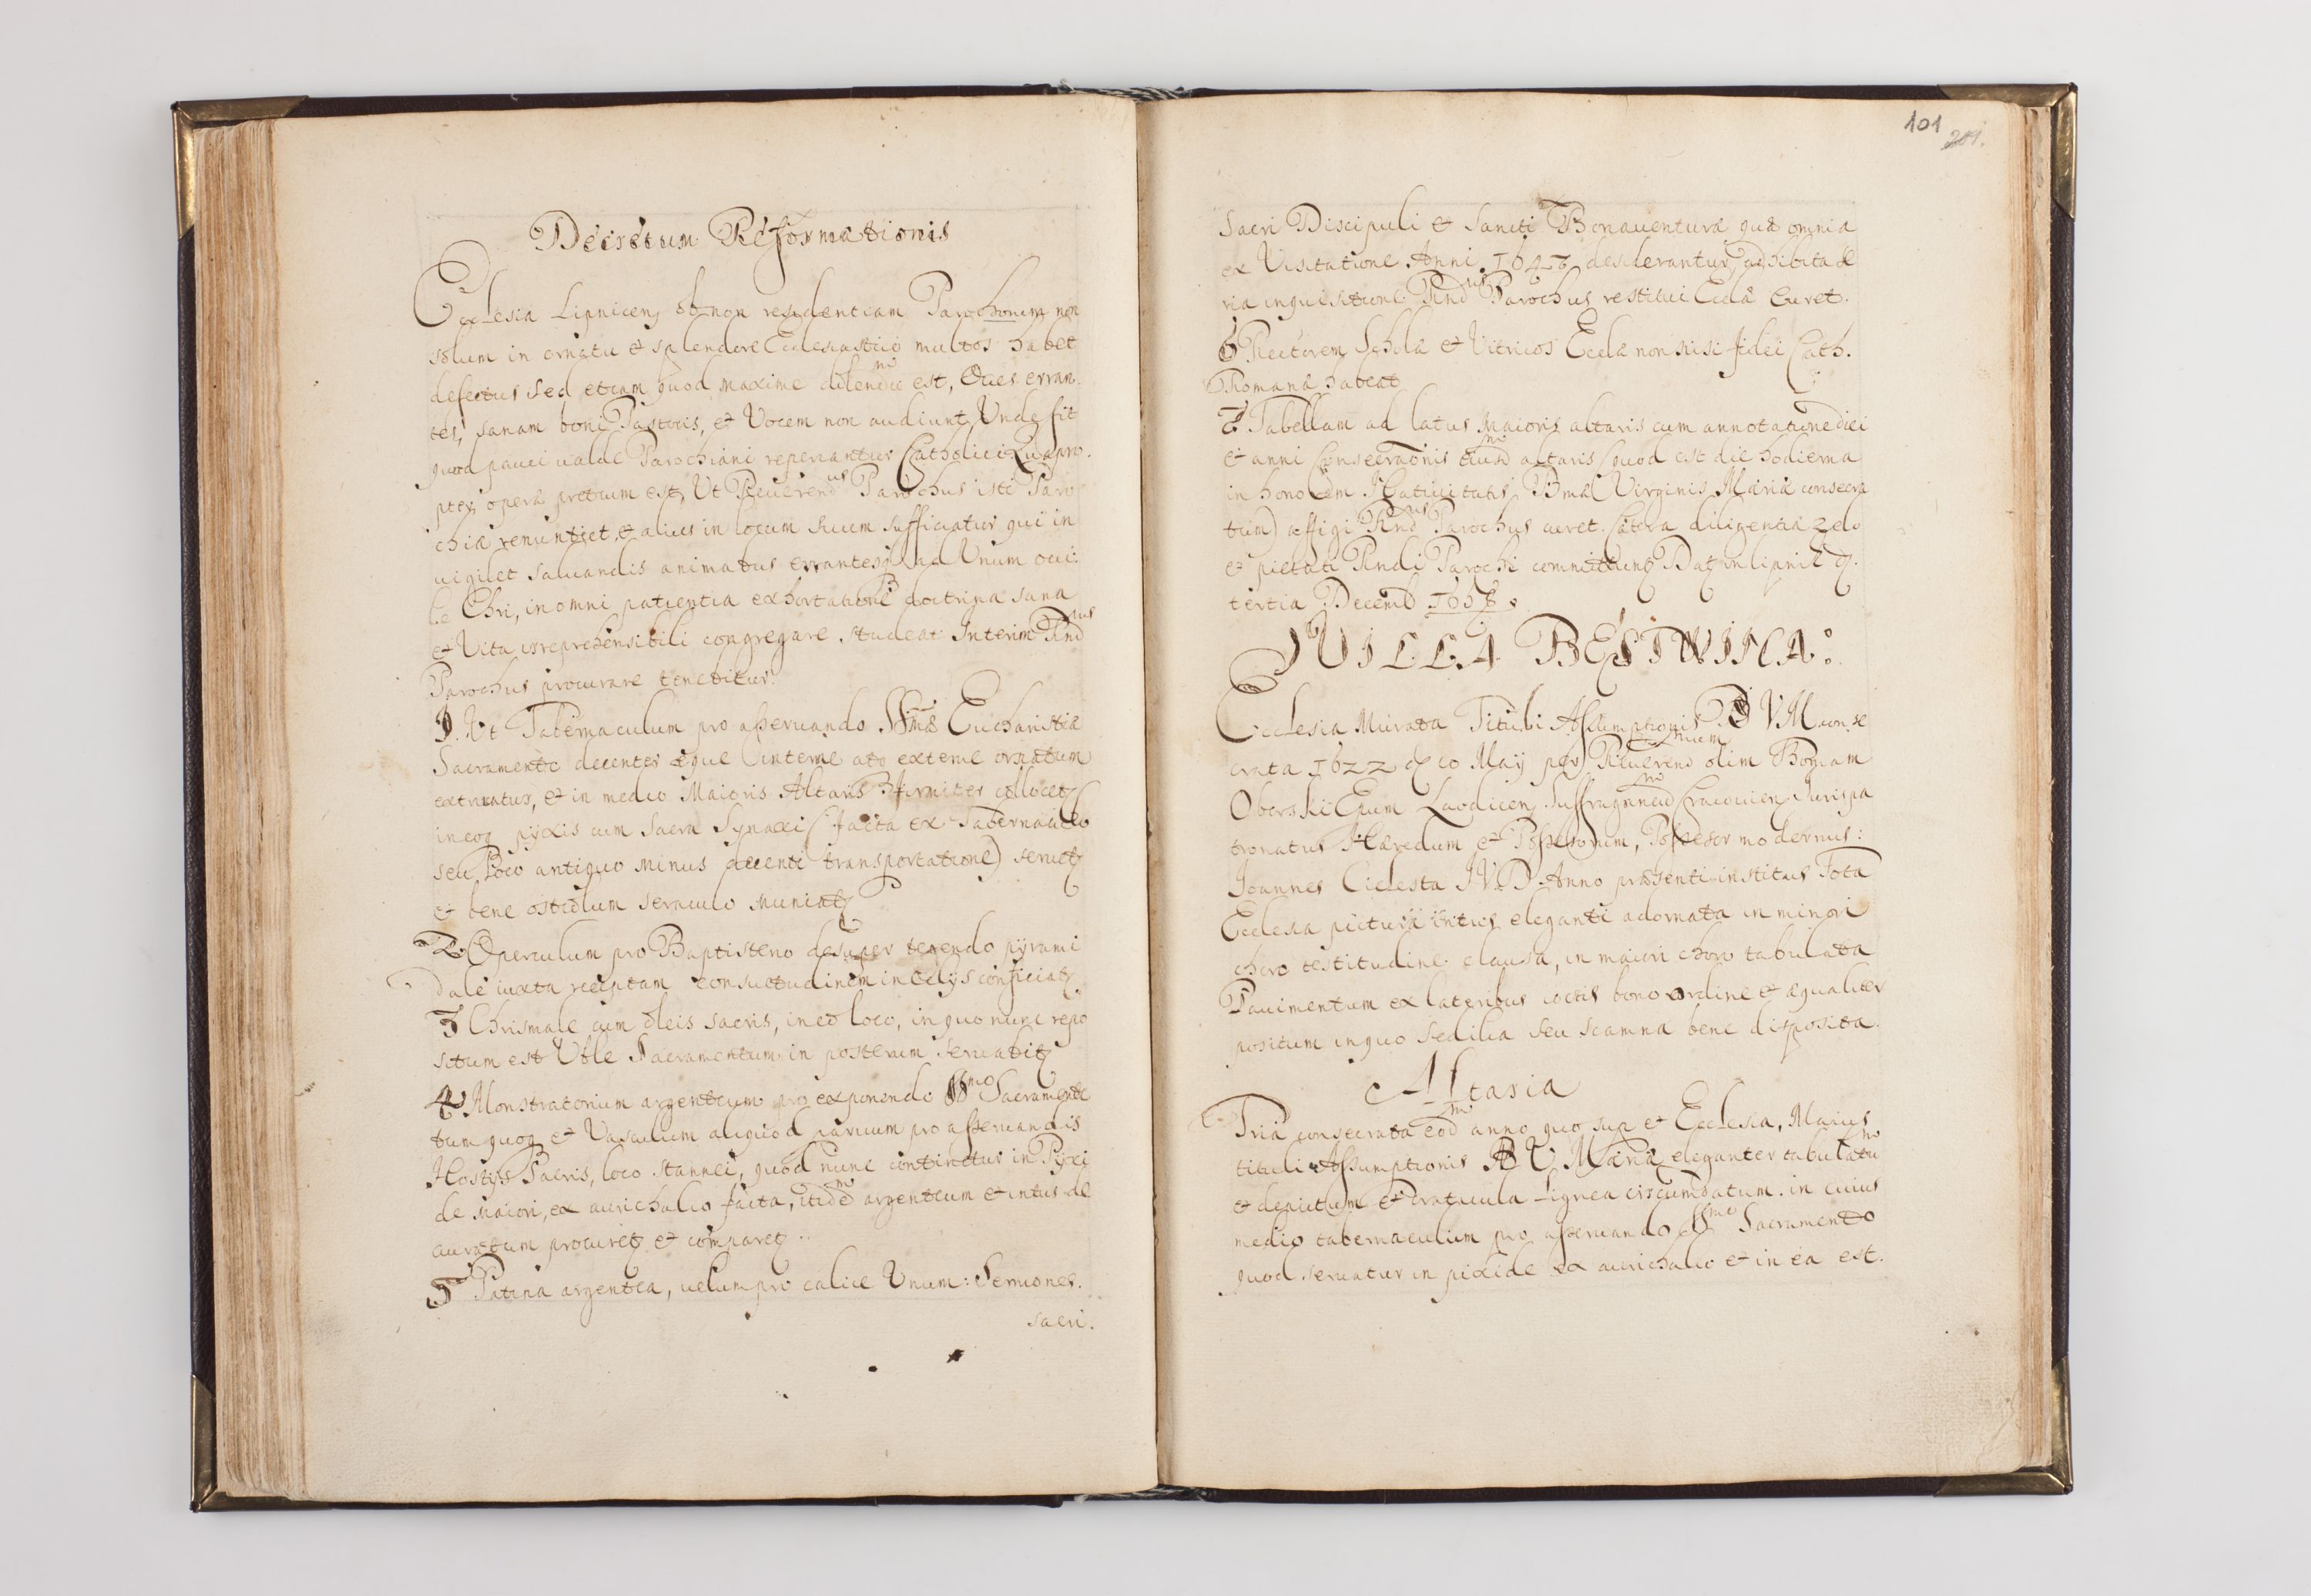 Decretum Reformationis
Ecclesia Lipnicen ob non residentiam Parochorum non
solum in ornatu et splendore Ecclesiastico multos habet
defectus sed etiam quod maxime dolendu est, Oues erran
tes, sanam boni Pastoris, et Vocem non audiunt Unde fit
quod pauci ualde Parochiani reperiantur Catholici Quapro
pter operæ pretium est, Ut Reuerendus Parochus isti Paro
chiæ renuntiet, et alius in locum suum sufficiatur qui in
uigilet saluandis animabus errantesq ad Unum oui
le Chri, in omni patientia exhortatione doctrina sana
et Vita irreprehensibili congregare studeat Interim Rndus
Parochus procurare tenebitur.
1. Ut Tabernaculum pro asseruando SSmæ Eucharistiæ
Sacramento decenter æque interne atq externe ornatum
extruatur, et in medio Maioris Altaris firmiter collocet
in eoq pyxis cum sacra Synaxi (facta ex Tabernaculo
seu loco antiquo minus decenti transportatione) seruet
et bene ostiolum seraculo muniat
2 Operculum pro Baptisterio desuper tegendo pyrami
dale iuxta receptam consuetudinem in Eclijs conficiat
3 Chrismale cum oleis sacris, in eo loco, in quo nunc repo
situm est Vble Sacramentum in posterum seruabit
4 Monstratorium argenteum pro exponendo SSmo Sacramento
tum quoq et Vasculum aliquod paruum pro asseruandis
Hostijs Sacris, loco stannei, quod nunc continetur in Pyxi
de maiori, ex aurichalco facta, itidem argenteum et intus de
auratum procuret et comparet
5 Patina argentea, uelum pro calice Unum: Sermones.
sacri.
101
201.
Sacri Discipuli et Sancti Bonauenturæ quæ omnia
ex Visitatione Anni 1647 desiderantur, adhibita se
ria inquisitione Rndus Parochus restitui Eclæ Curet.
6 Rectorem Scholæ et Vitricos Eclæ non nisi fidei Cath.
Romanæ habeat
7 Tabellam ad latus Maioris altaris cum annotatione diei
et anni Consecrationis eiusdm altaris (quod est die hodierna
in honorem Natiuitatis Bmæ Virginis Mariæ consecra
tum) affigi Rndus Parochus curet. Cætera diligentiæ zelo
et pietati Rndi Parochi committunt Dat in lipnik d.
tertia Decemb 1658.
VILLA BESTWINA:
Ecclesia Murata Tituli Assumptionis B V M conse
crata 1622 d 10 Maij per Reuerendmum olim Thomam
Oberski Epum Laodicen Suffraganeum Cracouien Iurispa
tronatus Hæredum et Possessorum, Possessor modernus:
Joannes Ciclesta IVD. Anno præsenti institus Tota
Ecclesia pictura intus eleganti adornata in minori
choro testitudine clausa, in maiori choro tabulata
Pauimentum ex lateribus coctis bono ordine et æqualiter
positum in quo Sedilia seu scamna bene disposita.
Altaria
Tria consecrata eodm anno quo sup et Ecclesia, Maius
tituli Assumptionis B V Mariæ eleganter tabulatu
et depictum et craticula lignea circumdatum. in cuius
medio tabernaculum pro asseruando SSmo Sacramento
quod seruatur in pixide ex aurichalco et in ea est.